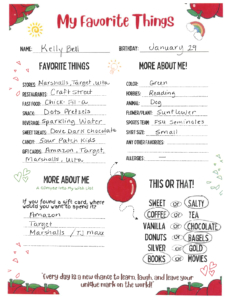 My Favorite Things
NAME: Kelly Bell BIRTHDAY: January 29
FAVORITE THINGS
STORES: Marshalls, Target, Ulta
RESTAURANT: Craft Street
FAST FOOD: Chick-fil-a
SNACK: Dots Pretzels
BEVERAGE: Sparkling Water
SWEET TREATS: Dove Dark Chocolate
CANDY: Sour Patch Kids
GIFT CARDS: Amazon, Target,
Marshalls, Ulta
MORE ABOUT ME!
COLOR: Green
HOBBIES: Reading
ANIMAL: Dog
FLOWER/PLANT: Sunflower
SPORTS TEAM: FSU Seminoles
SHIRT SIZE: Small
ANY OTHER FAVORITES:
ALLERGIES:
MORE ABOUT ME
If you found a gift card, where
would you want to spend it?
Amazon
Target
Marshalls / TJ Maxx
THIS OR THAT!
SWEET or SALTY
COFFEE or TEA
VANILLA or CHOCOLATE
DONUTS or BAGELS
SILVER or GOLD
BOOKS or MOVIES
"Every day is a new chance to learn, laugh, and leave your
unique mark on the world!"